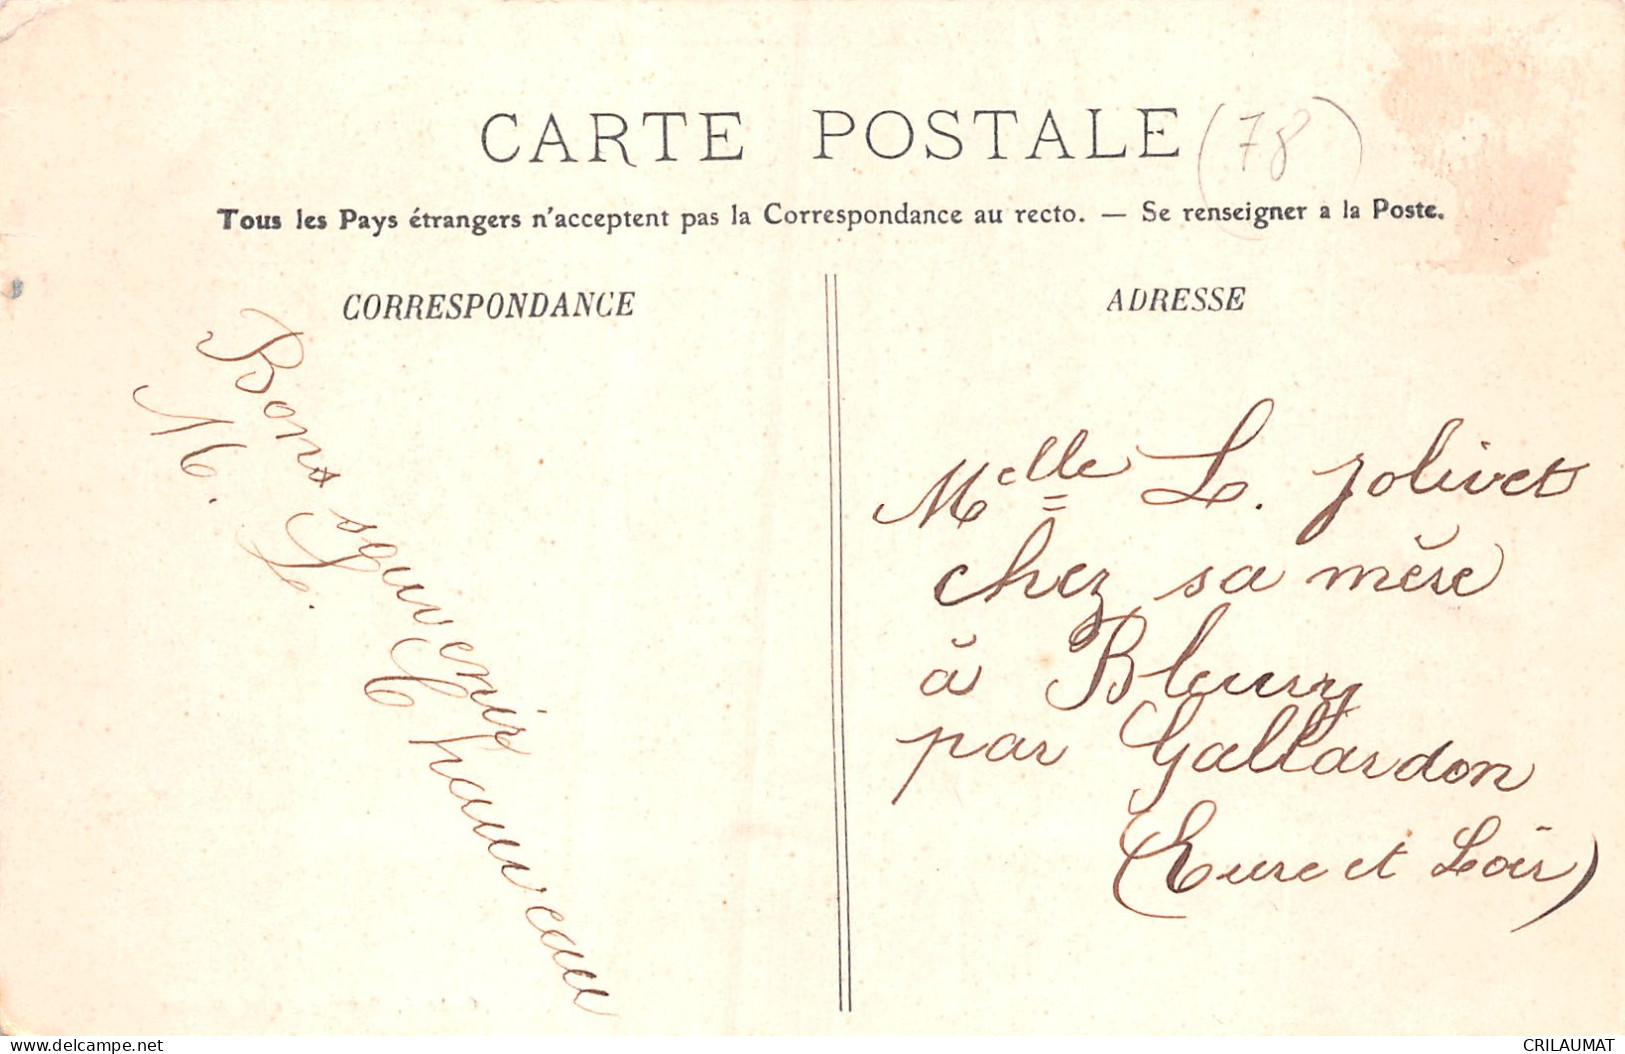 CARTE POSTALE
(78)
Tous les Pays étrangers n'acceptent pas la Correspondance au recto. — Se renseigner a la Poste.
CORRESPONDANCE
Bons souvenirs
M. L. Chauveau
ADRESSE
Melle L. Jolivet
chez sa mère
à Bleury
par Gallardon
(Eure et Loir)
www.delcampe.net
CRILAUMAT